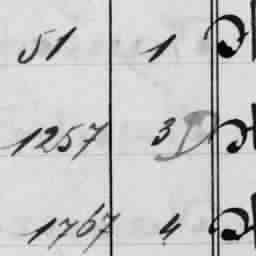 51 1
1257 3
1767 4